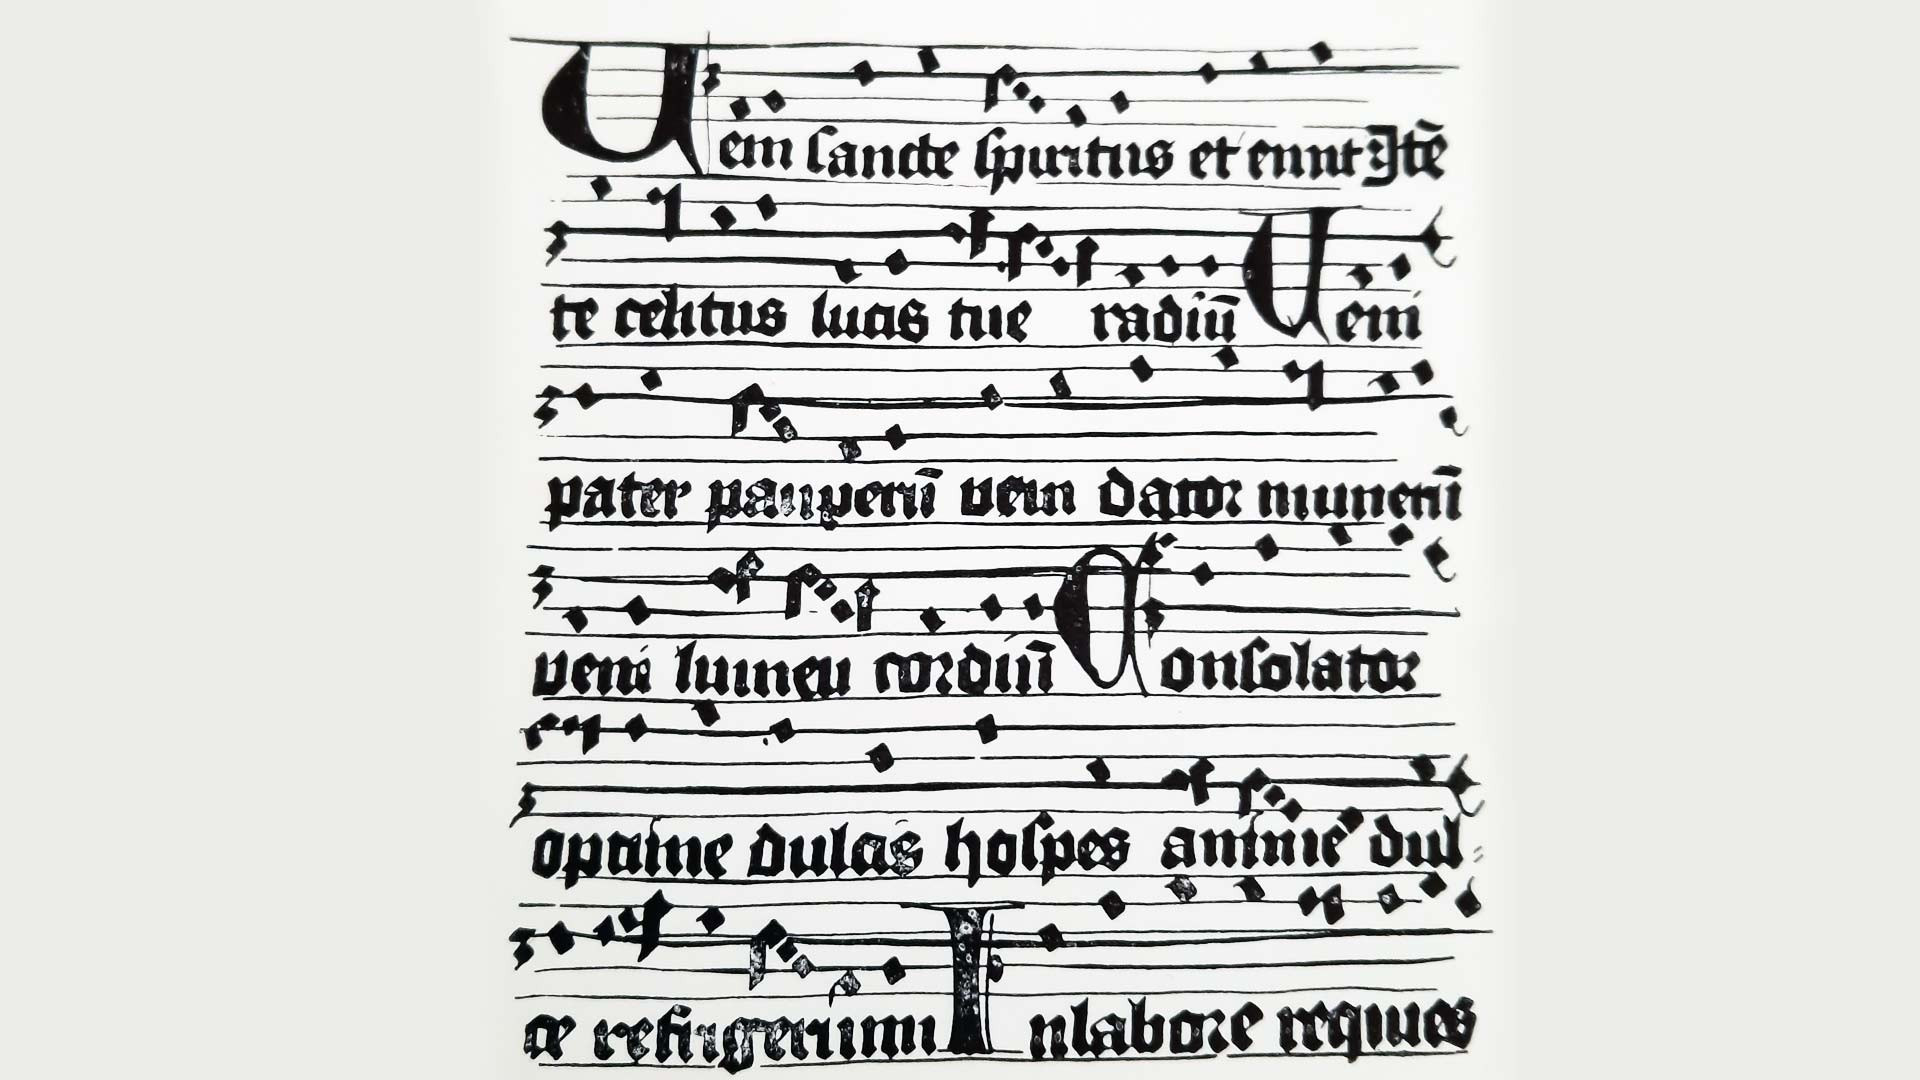 Veni sancte spiritus et emitte
te celitus lucis tue radiū Veni
pater pauperū veni dator munerū
veni lumen cordiū Consolator
optime dulcis hospes anime dul
ce refrigerium In labore requies